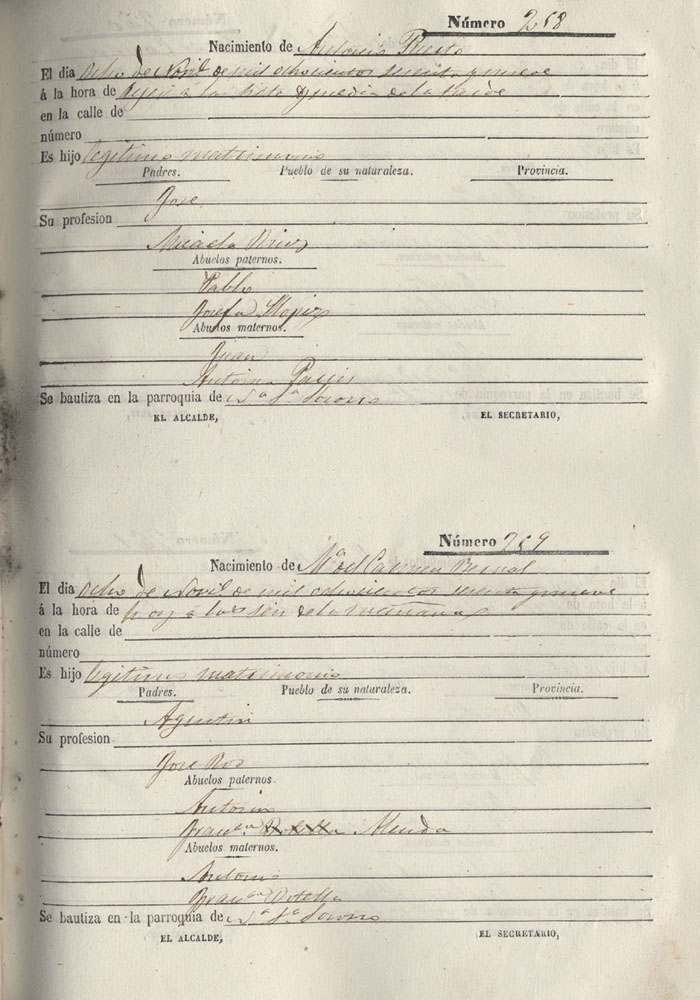 Número 258
Nacimiento de Antonio Puerto
El dia ocho de Nov.e de mil ochocientos sesenta y nueve
á la hora de ayer a las siete y media de la tarde
en la calle de
número
Es hijo legitimo matrimonio
Padres. Pueblo de su naturaleza. Provincia.
Jose
Su profesion
Micaela
Abuelos paternos.
Pablo
Josefa
Abuelos maternos.
Juan
Antonia
Se bautiza en la parroquia de N.a S.a Socorro
EL ALCALDE, EL SECRETARIO,
Número 259
Nacimiento de M.a del Carmen Bernal
El dia ocho de Nov.e de mil ochocientos sesenta y nueve
á la hora de hoy a las seis de la mañana
en la calle de
número
Es hijo legitimo matrimonio
Padres. Pueblo de su naturaleza. Provincia.
Agustin
Su profesion
Jose Ros
Abuelos paternos.
Antonio
Fran.ca Rotella Menda
Abuelos maternos.
Antonio
Fran.ca Rotella
Se bautiza en la parroquia de N.a S.a Socorro
EL ALCALDE, EL SECRETARIO,